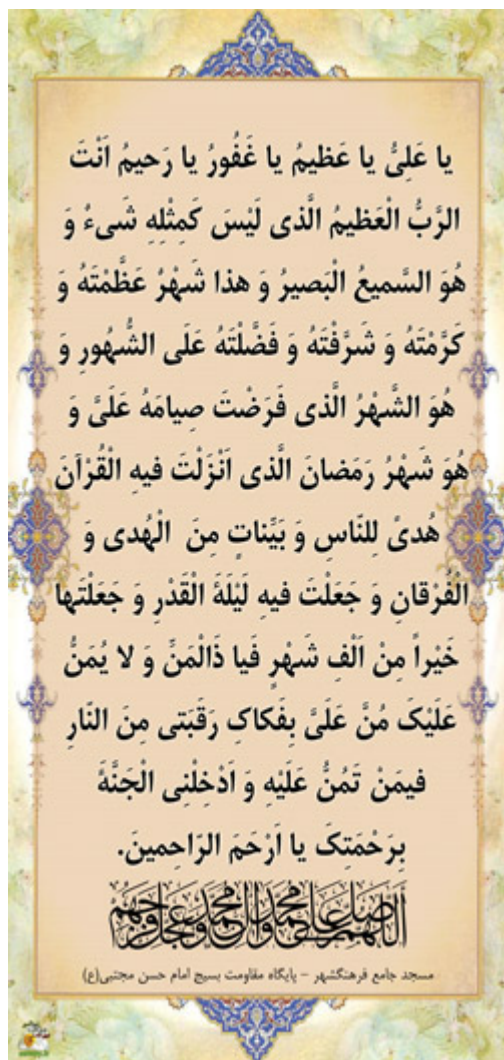 یا عَلِیُّ یا عَظیمُ یا غَفُورُ یا رَحیمُ اَنْتَ
الرَّبُّ الْعَظیمُ الَّذی لَیْسَ کَمِثْلِهِ شَیءٌ وَ
هُوَ السَّمیعُ الْبَصیرُ وَ هذا شَهْرٌ عَظَّمْتَهُ وَ
کَرَّمْتَهُ وَ شَرَّفْتَهُ وَ فَضَّلْتَهُ عَلَی الشُّهُورِ وَ
هُوَ الشَّهْرُ الَّذی فَرَضْتَ صِیامَهُ عَلَیَّ وَ
هُوَ شَهْرُ رَمَضانَ الَّذی اَنْزَلْتَ فیهِ الْقُرْآنَ
هُدیً لِلنّاسِ وَ بَیِّناتٍ مِنَ الْهُدی وَ
الْفُرْقانِ وَ جَعَلْتَ فیهِ لَیْلَةَ الْقَدْرِ وَ جَعَلْتَها
خَیْراً مِنْ اَلْفِ شَهْرٍ فَیا ذَالْمَنِّ وَ لا یُمَنُّ
عَلَیْکَ مُنَّ عَلَیَّ بِفَکاکِ رَقَبَتی مِنَ النّارِ
فیمَنْ تَمُنُّ عَلَیْهِ وَ اَدْخِلْنِی الْجَنَّةَ
بِرَحْمَتِکَ یا اَرْحَمَ الرّاحِمینَ.
اَللّهُمَّ صَلِّ عَلی مُحَمَّدٍ وَ آلِ مُحَمَّدٍ وَ عَجِّلْ فَرَجَهُمْ
مسجد جامع فرهنگشهر - پایگاه مقاومت بسیج امام حسن مجتبی(ع)